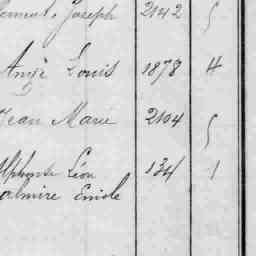 Joseph 2142 5
Ange Louis 1878 4
Jean Marie 2104 5
Alphonse Léon 134 1
Emile